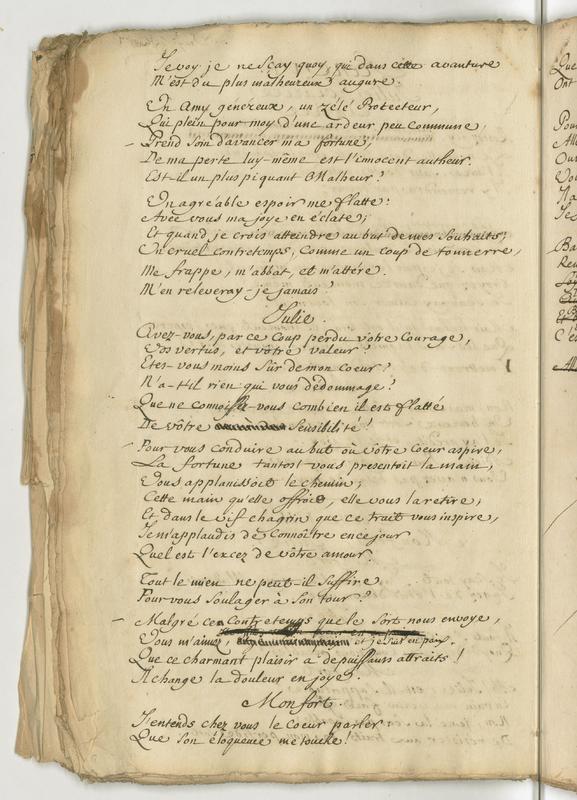 Je voy je ne sçay quoy, qui dans cette avanture
M'est du plus malheureux augure.
Un Amy genereux, un zélé Protecteur,
Qui plein pour moy d'une ardeur peu commune,
Prend soin d'avancer ma fortune,
De ma perte luy-même est l'innocent autheur.
Est-il un plus piquant Malheur?
Un agréable espoir me flatte:
Avec vous ma joye en éclate;
Et quand je crois atteindre au but de mes souhaits;
Un cruel contretemps, comme un coup de tonnerre,
Me frappe, m'abbat, et m'attére.
M'en releveray-je jamais?
Julie.
Avez-vous, par ce coup perdu vôtre courage,
Vos vertus, et vôtre valeur?
Etes-vous moins sûr de mon coeur?
N'a-t-il rien qui vous dédommage?
Que ne connoissez-vous combien il est flatté
De vôtre sensibilité!
Pour vous conduire au but où vôtre coeur aspire,
La fortune tantost vous presentoit la main,
Vous applanissoit le chemin;
Cette main qu'elle offroit, elle vous la retire;
Et dans le vif chagrin que ce trait vous inspire,
Je m'applaudis de connoître en ce jour
Quel est l'excez de vôtre amour.
Tout le mien ne peut-il suffire
Pour vous soulager à son tour?
Malgré ce Contretemps que le sort nous envoye,
Vous m'aimez, et je
Que ce charmant plaisir a de puissans attraits!
Il change la douleur en joye.
Monfort.
J'entends chez vous le coeur parler
Que son éloquence me touche!